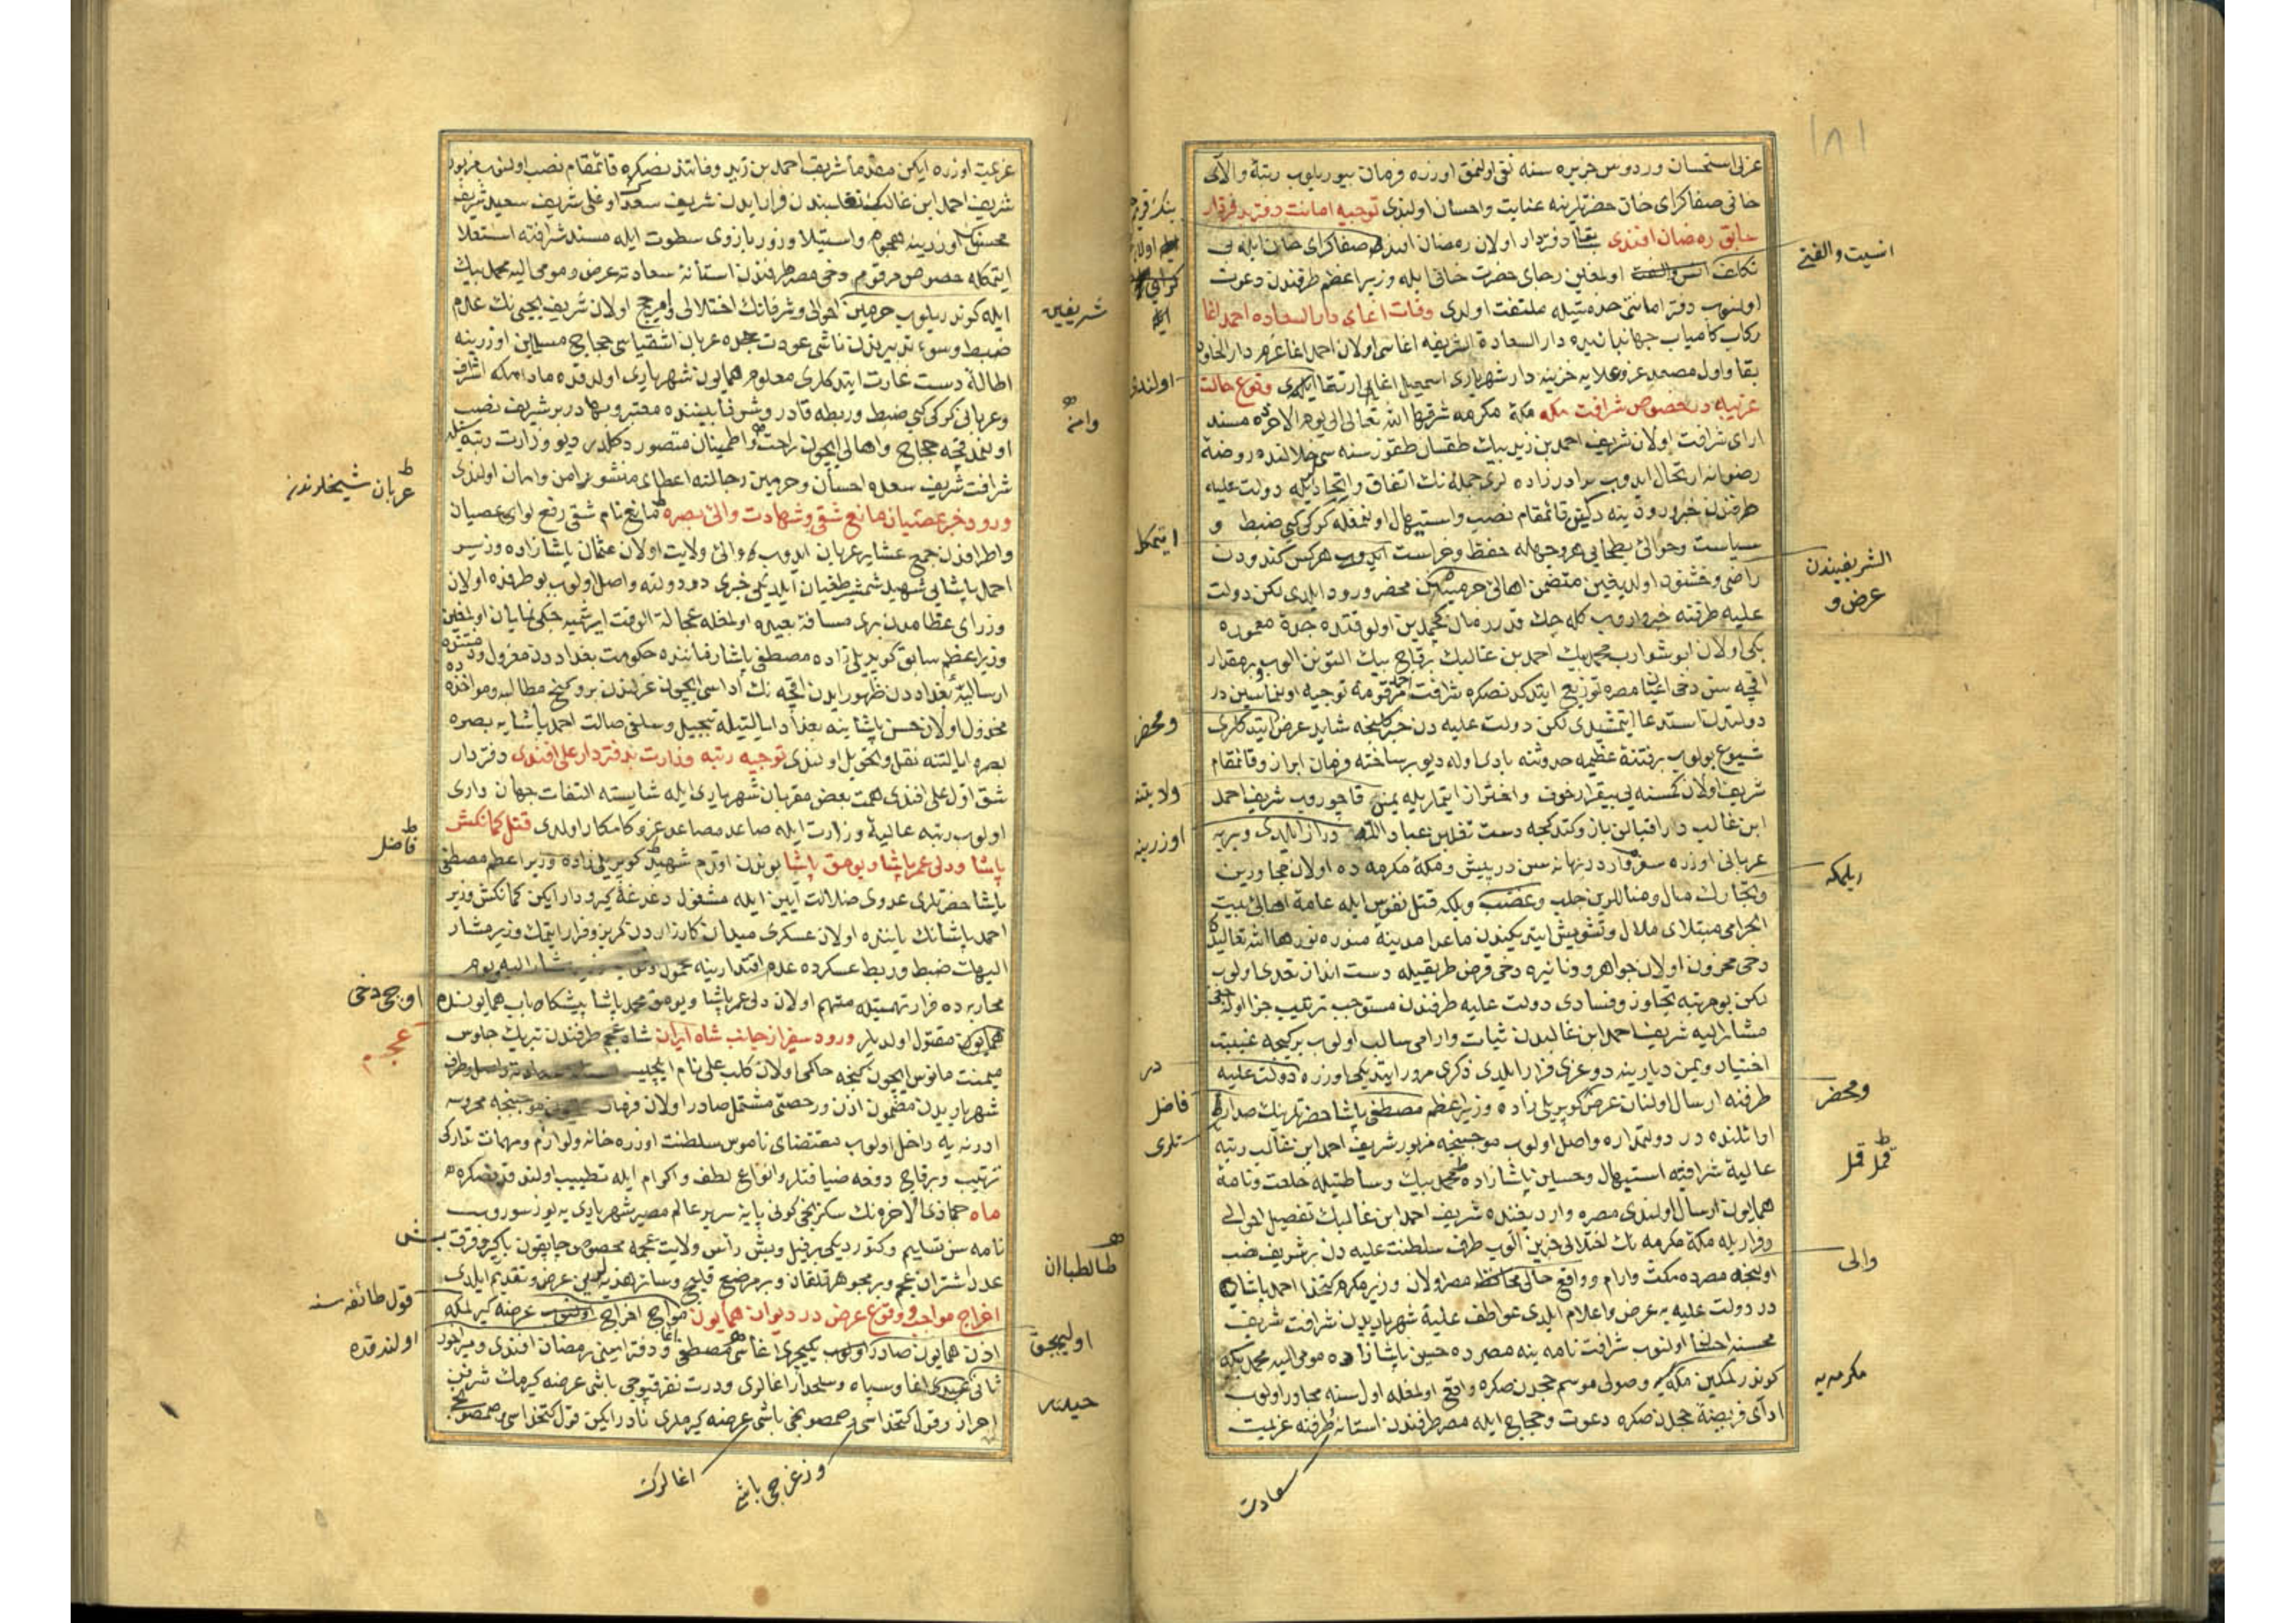 ١٨١
عزلی استحسان وردوس جزیره سنه نفی اولنمق اوزره فرمان بیوریلوب رتبۀ والای
خانی صفاکرای خان حضرتلرینه عنایت واحسان اولندی توجیه امانت دفتر بدفتردار
سابق رمضان افندی بقا دفتردار اولان رمضان افندی صفاکرای خان ایله بی
تکلف اولمغین رجای حضرت خانی ایله وزیر اعظم طرفندن دعوت
انسیت والفتی
اولنوب دفتر امانتی خدمتیله ملتفت اولدی وفات اغای دار السعاده احمد اغا
رکاب کامیاب جهانبانیده دار السعادة الشریفه اغاسی اولان احمد اغا عزم دار الخلود
بقا واول مصعد عز وعلایه خزینه دار شهریاری اسمعیل اغا ارتقا ایلدی وقوع حالت
اولندی
غریبه در خصوص شرافت مکه مکۀ مکرمه شرفها الله تعالی الی یوم الاخره مسند
ارای شرافت اولان شریف احمد بن زید بیك طقسان طقوز سنه سی خلالنده روضۀ
رضوانه ارتحال ایدوب برادرزاده لری جمله نك اتفاق واتحادیله دولت علیه
طرفندن خبر ورودینه دکین قائمقام نصب واستیهال اولنمغله کرکی کبی ضبط و
سیاست وحوالئ بطحایی هر وجهله حفظ وحراست ایدوب هرکس کندودن
ایتمکل
الشریفیندن
عرض و
راضی وخشنود اولدیغین متضمن اهالئ حرمین محضر ورود ایلدی لکن دولت
علیه طرفنه خبر واروب کله جك قدر زمان کچمدین اولوقتده جدۀ معموره
بکی اولان ابو شوارب محمد بیك احمد بن غالبك برقاچ بیك التونن الوب و بر مقدار
اقچه سن دخی اعیان مصره توزیع ایتدکدنصکره شرافت مرقومه توجیه اولنماسین در
دولتدن استدعا ایتمشیدی لکن دولت علیه دن خبر کلنجه شاید عرض ایتدکلری
ومحضر
شیوع بولوب بر فتنۀ عظیمه حدوثنه بادی اوله دیو بر ساخته فرمان ابراز وقائمقام
شریف اولان کمسنه یی بیقرار خوف واحتراز ایتماریله یمنه قاچوروب شریف احمد
ولایتنه
ابن غالب در اقبالن باز وکتدکجه دست تغلبن عباد اللهه دراز ایلدی وبریه
اوزرینه
عربانی اوزره سفر وار در بهانه سن در پیش ومکۀ مکرمه ده اولان مجاورین
ریلمکه
وتجارك مال ومنالرین جلب وغصب وبلکه قتل نفوس ایله عامۀ اهالئ بیت
الحرامی مبتلای ملال وتشویش ایتدیکندن ماعدا مدینه منوره نورها الله تعالیده
دخی مخزون اولان جواهر ودنانیره دخی قرض طریقیله دست انداز تعدی اولوب
لکن بو مرتبه تجاوز وفسادی دولت علیه طرفندن مستوجب ترتیب جزا اولمغین
مشار الیه شریف احمد ابن غالبدن ثبات وارامی سالب اولوب برکیجه غیبت
اختیار ویمن دیارینه دوغری فرار ایلدی ذکری مرور ایتدیکی اوزره دولت علیه
در
ومحضر
طرفنه ارسال اولنان عرض کوپریلی زاده وزیر اعظم مصطفی پاشا حضرتلرینك صدارت
فاضل
تلری
اوائلنده در دولتمداره واصل اولوب موجبنجه مزبور شریف احمد ابن غالب رتبه
عالیۀ شرافته استیهال وحسین پاشازاده محمد بیك وساطتیله خلعت ونامۀ
همایون ارسال اولندی مصره وارد یغنده شریف احمد ابن غالبك تفصیل احوالی
وفراریله مکۀ مکرمه نك اختلالی خبرین الوب طرف سلطنت علیه دن بر شریف نصب
اولنجه مصرده مکث وارام وواقع حالی محافظ مصر اولان وزیر مکرم کتخدا احمد پاشا
والی
در دولت علیه یه عرض واعلام ایلدی عواطف علیۀ شهریاریدن شرافت شریف
محسنه احسان اولنوب شرافت نامه ینه مصرده حسین پاشازاده مومی الیه محمد بیکه
کوندرلمکین مکه یه وصولی موسم حجدن صکره واقع اولمغله اول سنه مجاور اولوب
مکرمه یه
ادای فریضۀ حجدن صکره دعوت وحجاج ایله مصر طرفندن استانه طرفنه عزیمت
سعادت
عزیمت اوزره ایکن مقدما شریف احمد بن زید وفاتندنصکره قائمقام نصب اولنوب مزبور
شریف احمد ابن غالبك تغلبندن فرار ایدن شریف سعدك اوغلی شریف سعید شریف
محسنك اوزرینه هجوم واستیلا وزور بازوی سطوت ایله مسند شرافته استعلا
ایتمکله خصوص مرقوم دخی مصر طرفندن استانۀ سعادته عرض ومومی الیه محمد بیك
ایله کوندریلوب حرمین احوالی وشرفانك اختلالی ومیر حج اولان شریف یحیی نك عدم
شریفین
ضبط وسوء تدبیرندن ناشی عودت حجده عربان اشقیاسی حجاج مسلمین اوزرینه
اطالۀ دست غارت ایتدکلری معلوم همایون شهریاری اولدقده مادامکه اشراف
وعربانی کرکی کبی ضبط وربطه قادر وشرفا بیننده معتبر وبهادر بر شریف نصب
وامنه
اولنمدقجه حجاج واهالی ایچون راحت واطمینان متصور دکلدر دیو وزارت رتبه سیله
شرافت شریف سعده احسان وحرمین رجالنه اعطای منشور امن وامان اولندی
عربان شیخلرندن
ورود خبر عصیان مانع شقی وشهادت والئ بصره مانع نام شقی رفع لوای عصیان
واطرافدن جمع عشایر عربان ایدوب والئ ولایت اولان عثمان پاشازاده وزیر
احمد پاشایی شهید شمشیر طغیان ایلدیکی خبری در دولته واصل اولوب بو طرفده اولان
وزرای عظامدن بری مسافۀ بعیده اولمغله عجالة الوقت ایرشمیه جکی نمایان اولمغین
وزیر اعظم سابق کوپریلی زاده مصطفی پاشا زماننده حکومت بغداددن معزول و
ارسالیۀ بغداددن ظهور ایدن اقچه نك اداسی ایچون عزلندن برو کنج مطالبه ومواخذه ده
مخذول اولان حسن پاشا ینه بغداد ایالتیله تبجیل وسلفی صالت احمد پاشایه بصره
بصره ایالتنه نقل وتحویل اولندی توجیه رتبه وزارت بدفتردار علی افندی دفتردار
شق اول علی افندی همت بعض مقربان شهریاری ایله شایسته التفات جهان داری
اولوب رتبه عالیۀ وزارت ایله صاعد مصاعد عز وکامکار اولدی قتل کمانکش
فاضل
پاشا ودلی عمر پاشا ویومق پاشا بوندن اقدم شهید کوپریلی زاده وزیر اعظم مصطفی
پاشا حضرتلری عدوی ضلالت آیین ایله مشغول دغدغۀ کیرودار ایکن کمانکش وزیر
احمد پاشانك یاننده اولان عسکری میدان کارزاردن کریز وفرار ایتمك وزیر مشار
الیهك ضبط وربط عسکرده عدم اقتدارینه محمول
محاربه ده فرار تهمتیله متهم اولان دلی عمر پاشا ویومق محمد پاشا پیشکاه باب همایونده
اوچی دخی
همایونده مقتول اولدیلر ورود سفیر از جانب شاه ایران شاه عجم طرفندن تبریك جلوس
عجم
میمنت مانوس ایچون کنجه حاکمی اولان کلب علی نام ایلچی
شهریاریدن مضمون اذن ورخصتی مشتمل صادر اولان فرمان موجبنجه محروسه
ادرنه یه داخل اولوب مقتضای ناموس سلطنت اوزره خانه ولوازم ومهمات تدارکی
ترتیب وبرقاچ دفعه ضیافتلر وانواع لطف واکرام ایله تطییب اولندقدنصکره
ماه جماذی الاخره نك سکزنجی کونی پایۀ سریر عالم مصیر شهریاری یه یوز سوروب
نامه سن تسلیم وکتوردیکی بر فیل وبش رأس ولایت عجمه مخصوص چاپقون بارکیر وقرق بش
طالطبان
عدد اشتران عجم وبر مجوهر قلقان وبر مرصع قلیج وسائر هدیه لرین عرض وتقدیم ایلدی
قول طائفه سنه
اخراج مواجب ووقوع عرض در دیوان همایون مواجب اخراج اولنوب عرضه کیرلمکه
اولندقده
اذن همایون صادر اولوب یکیچری اغاسی مصطفی اغا ودفتر امینی رمضان افندی ومیراخور
اولیجق
ثانی اغا وسپاه وسلحدار اغالری ودرت نفر قپوجی باشی عرضه کیرمك شرفن
حیدر
احراز وقول کتخداسی وصمصونجی باشی عرضه کیرملری نادر ایکن قول کتخداسی وصمصونجی
وزغرجی باشی
اغالرك